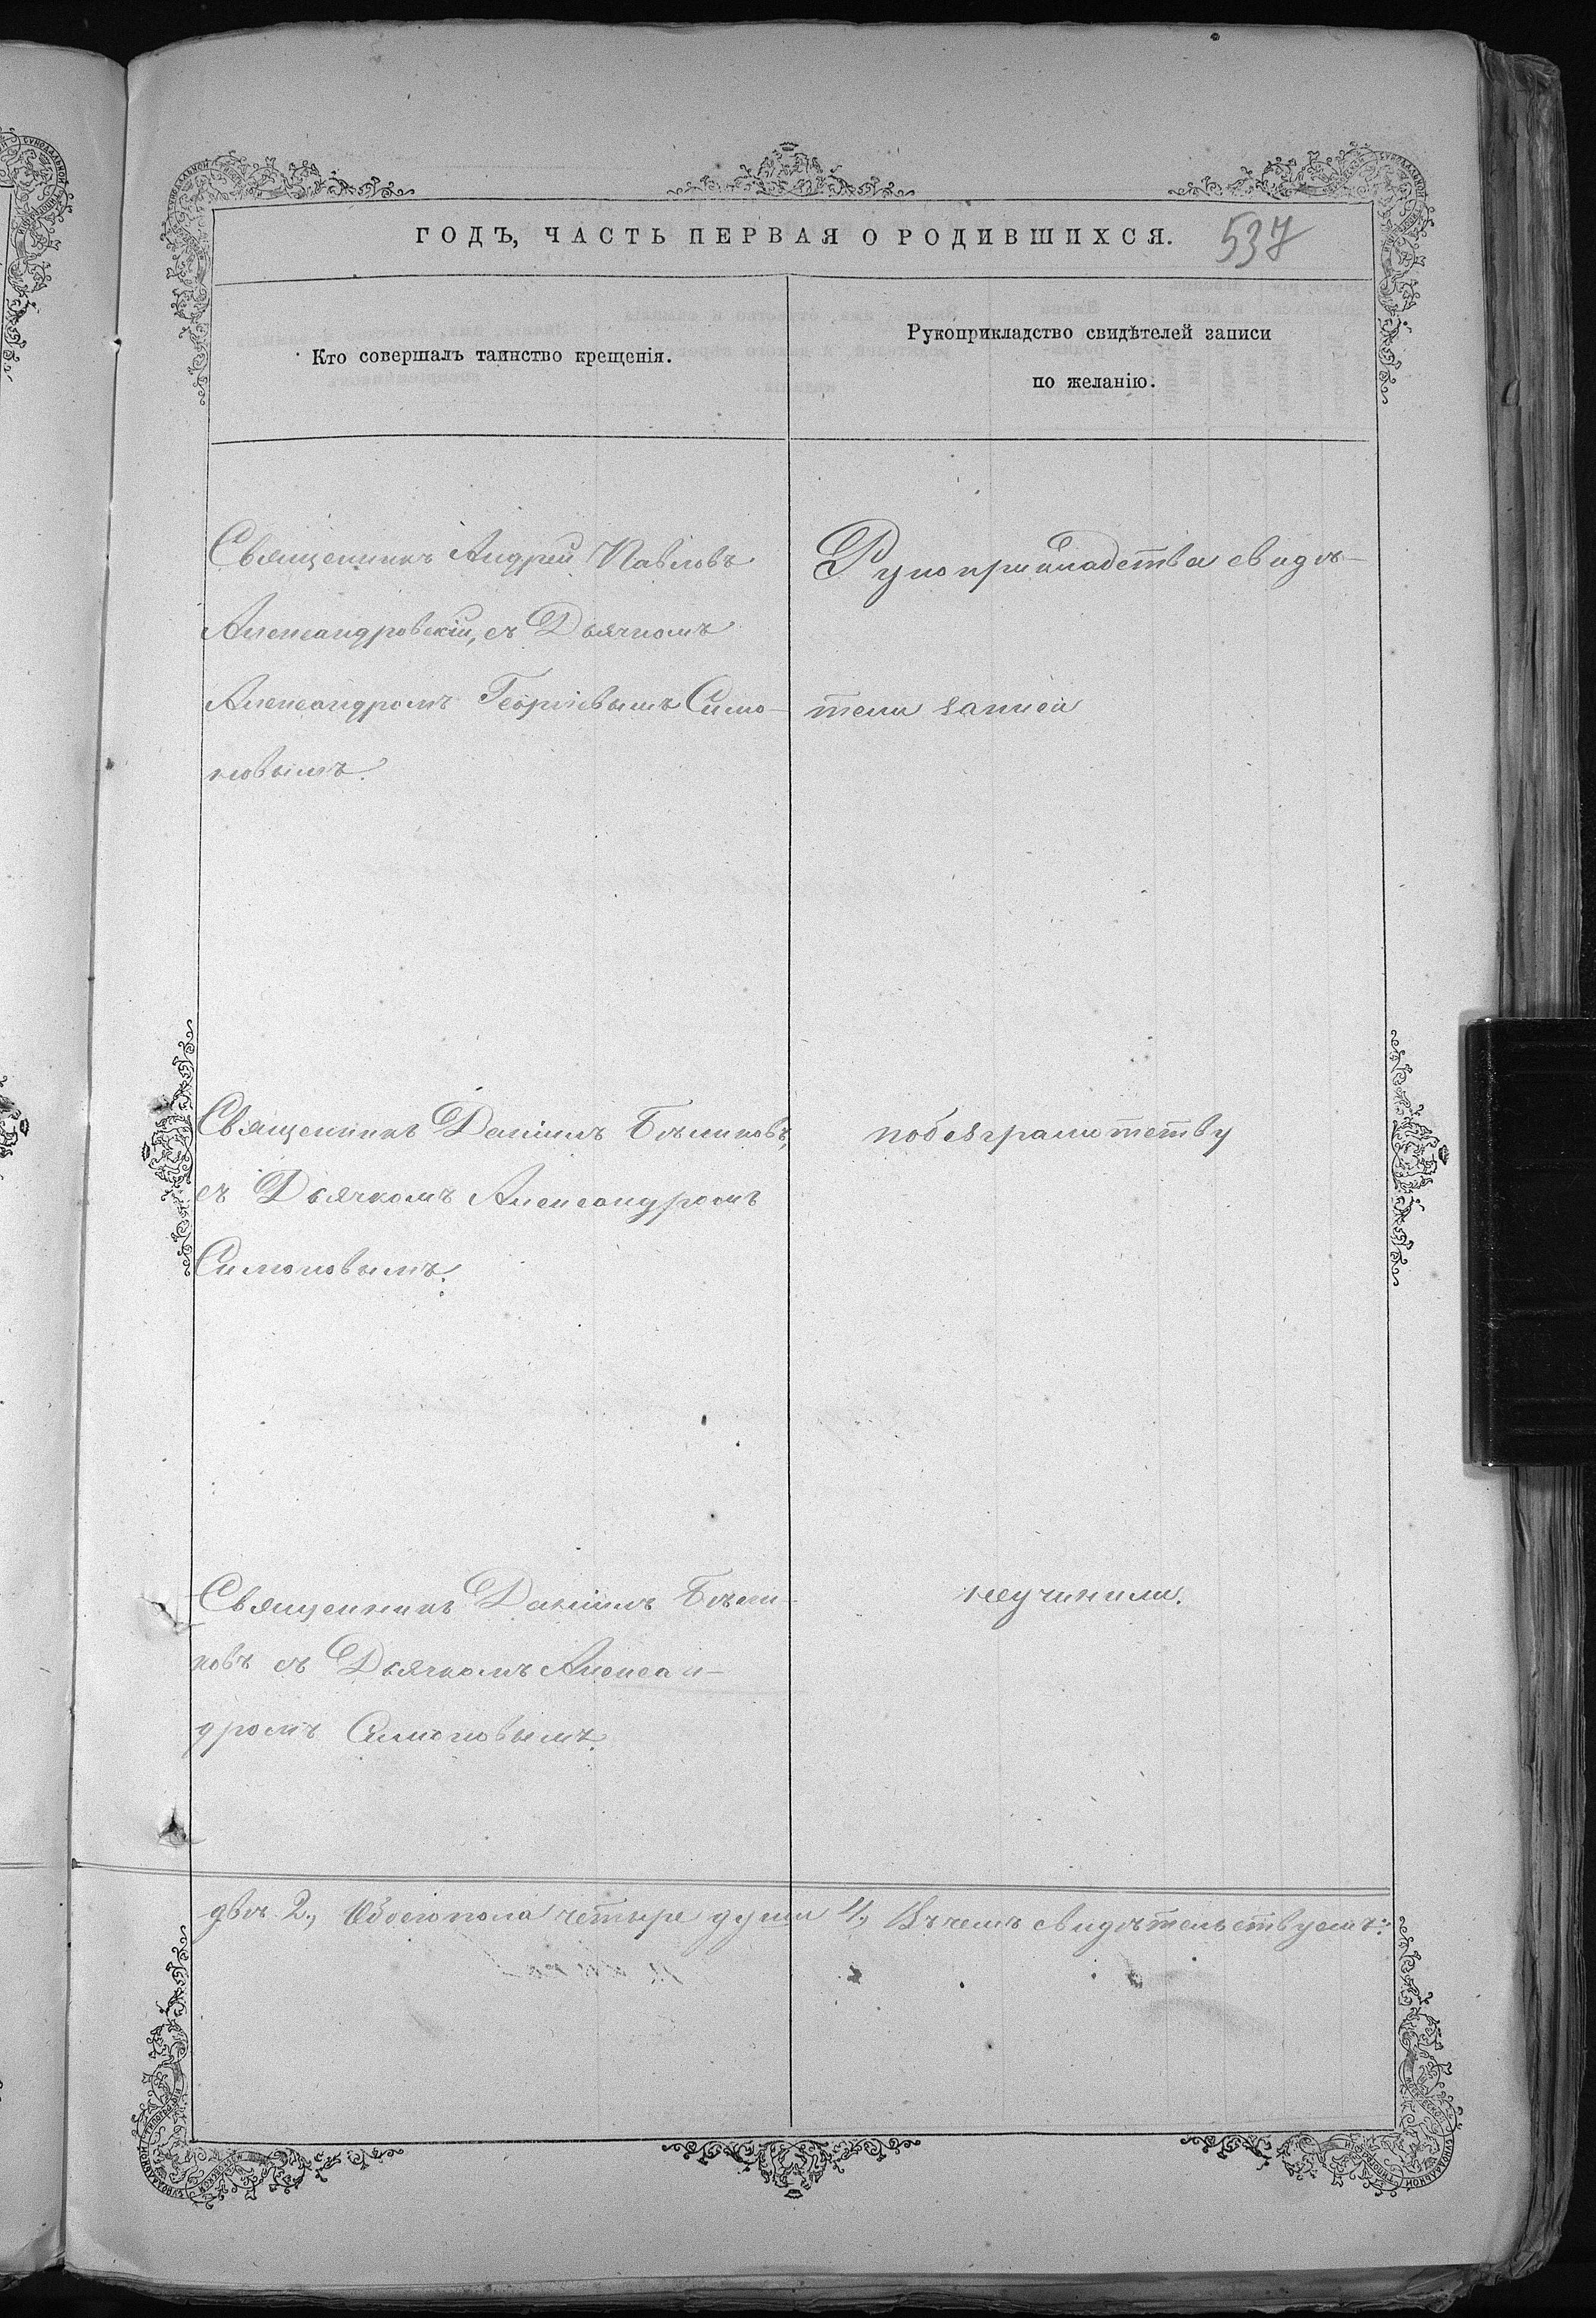 ГОДЪ, ЧАСТЬ ПЕРВАЯ О РОДИВШИХСЯ.
537
Кто совершалъ таинство крещенія.
Рукоприкладство свидѣтелей записи
по желанію.
Священникъ Андрей Павловъ
Александровскій, съ Дьячкомъ
Александромъ Георгіевымъ Симо-
новымъ.
Рукоприкладства свидѣ-
тели записи
Священникъ Даніилъ Бѣликовъ,
съ Дьячкомъ Александромъ
Симоновымъ.
побезграмотству
Священникъ Даніилъ Бѣли-
ковъ съ Дьячкомъ Алексан-
дромъ Симоновымъ.
неучинили.
двѣ 2., Обоегопола четыре души 4., Въчемъ свидѣтельствуемъ: